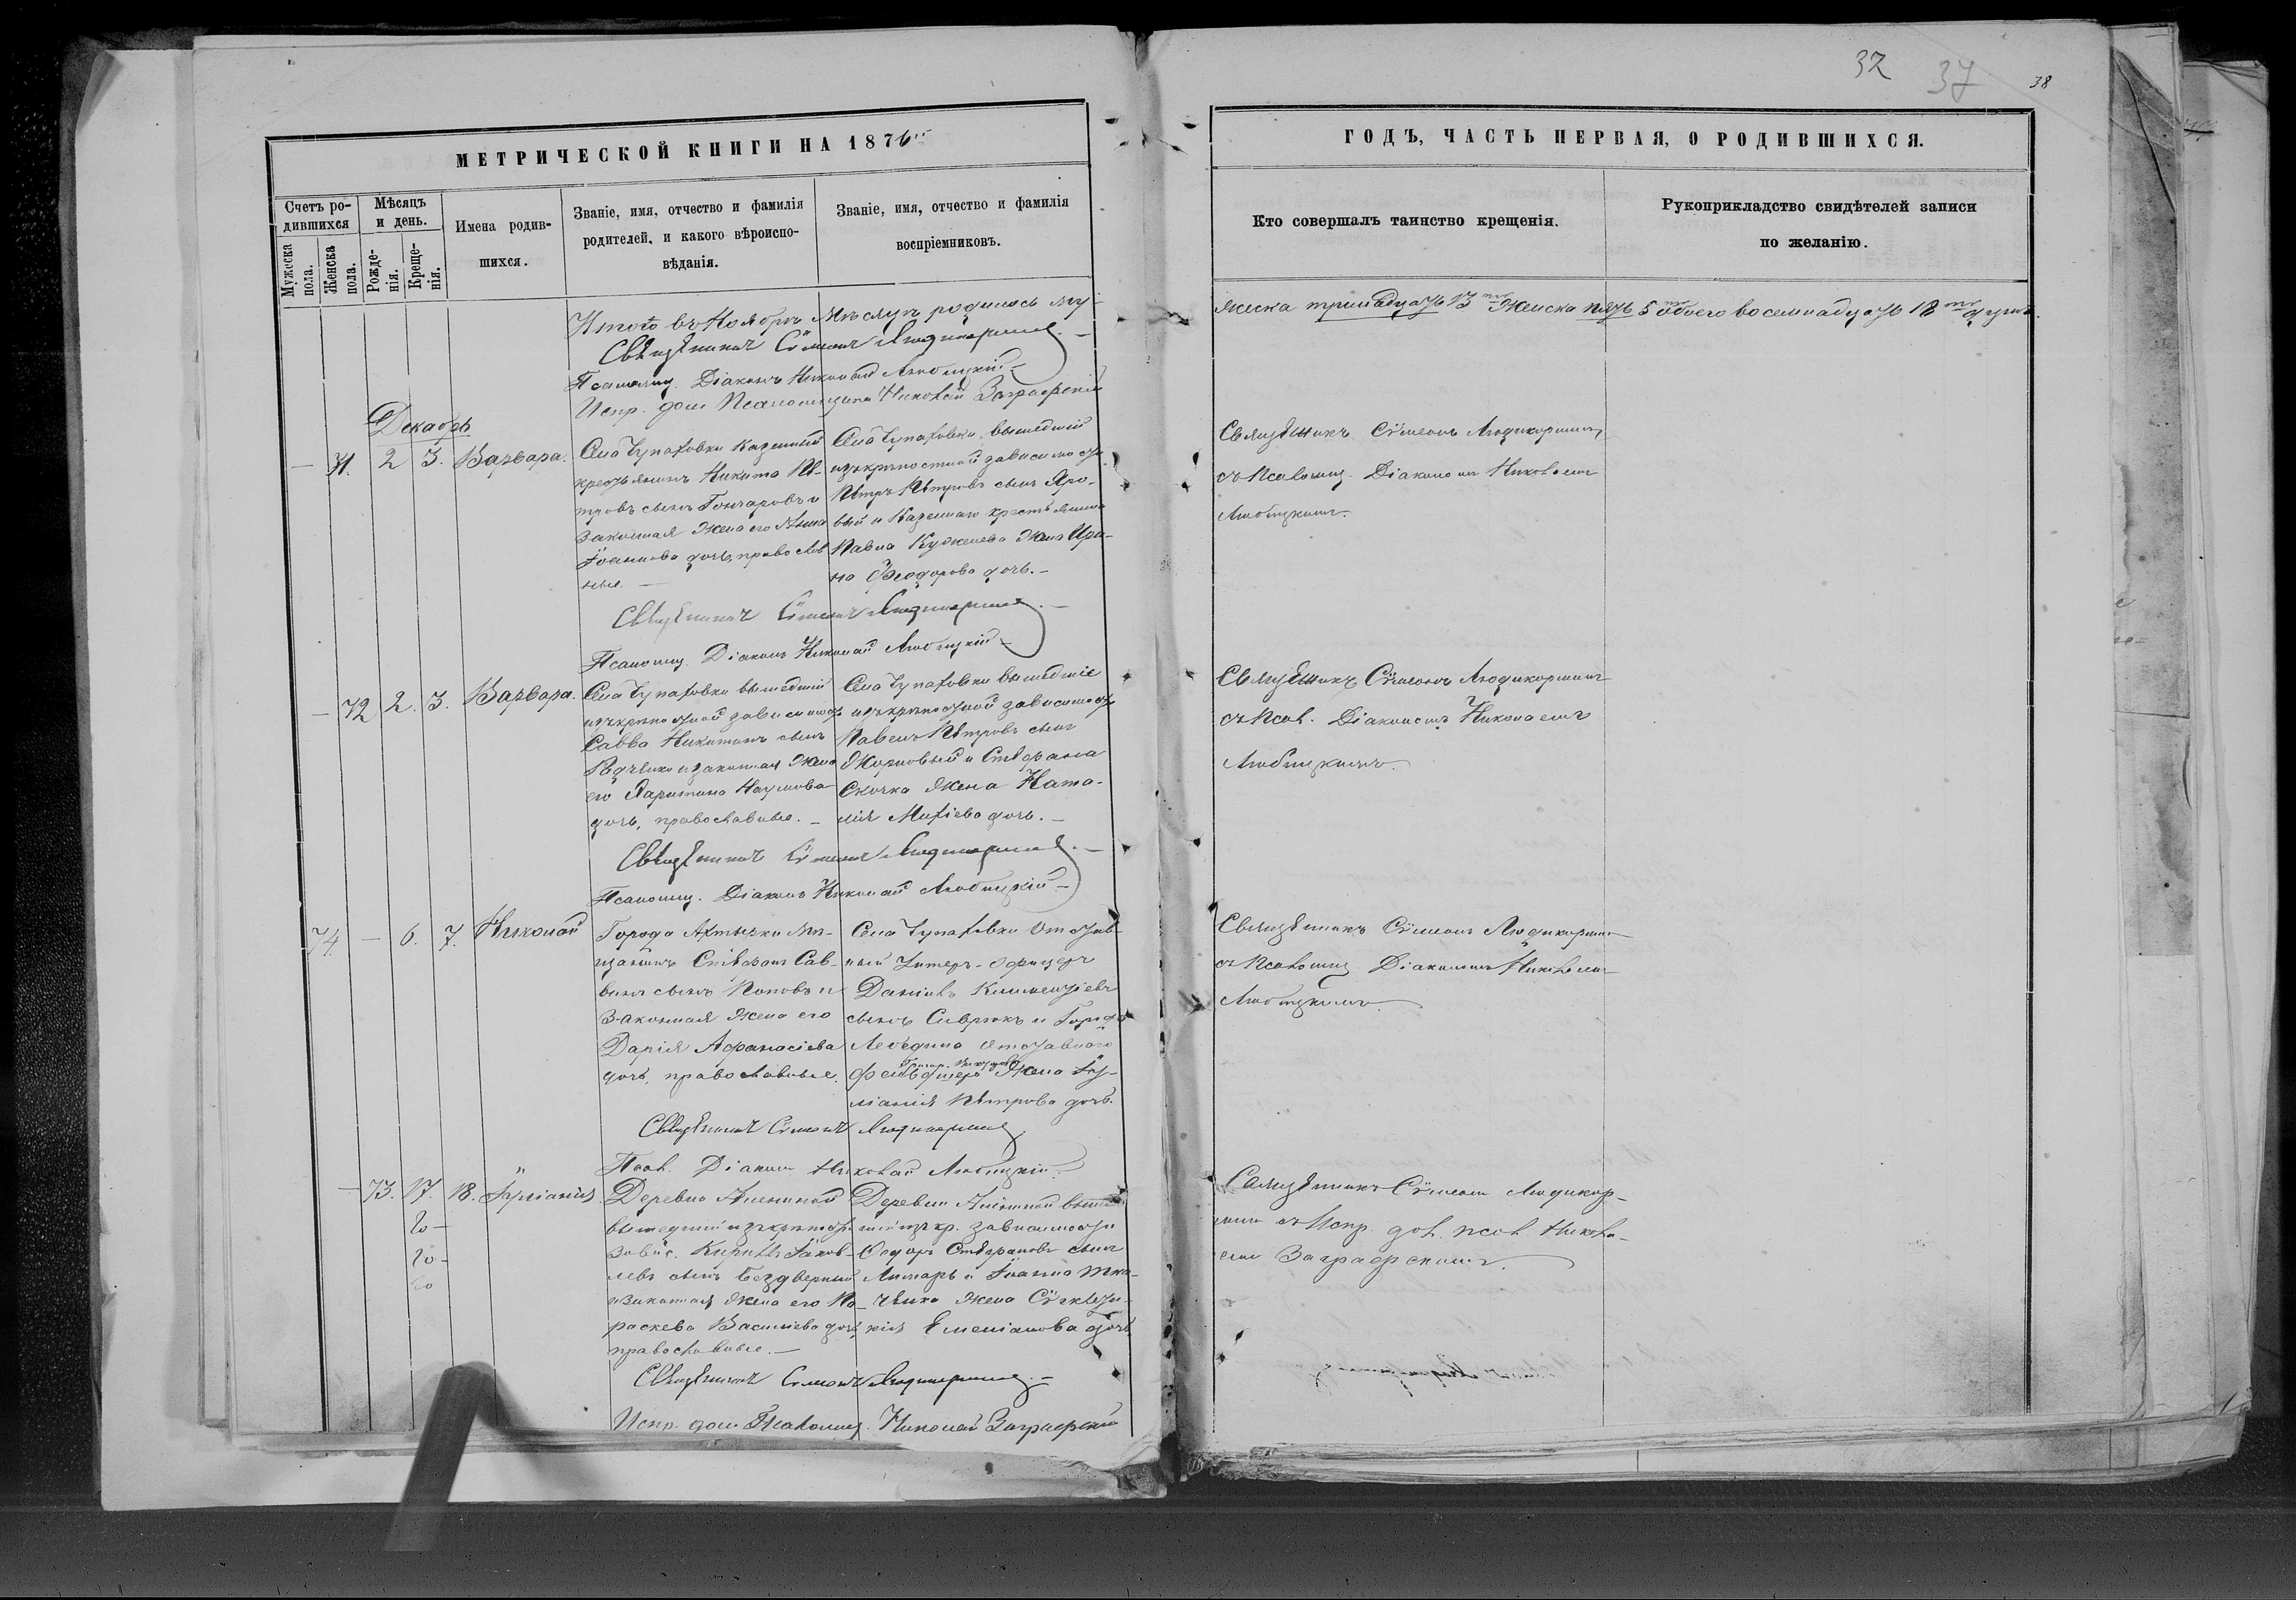 32 37 38
МЕТРИЧЕСКОЙ КНИГИ НА 1876
ГОДЪ, ЧАСТЬ ПЕРВАЯ, О РОДИВШИХСЯ.
Счетъ ро-
дившихся
Мужеска пола.
Женска пола.
Мѣсяцъ
и день.
Рожде-
нія.
Креще-
нія.
Имена родив-
шихся.
Званіе, имя, отчество и фамилія
родителей, и какого вѣроиспо-
вѣданія.
Званіе, имя, отчество и фамилія
воспріемниковъ.
Кто совершалъ таинство крещенія.
Рукоприкладство свидѣтелей записи
по желанію.
Итого въ Ноябрѣ Мѣсяцѣ родилось му-
жеска тринадцать 13 женска пять 5 обоего восемнадцать 18 душъ.
Священникъ Сѵмеонъ
Псаломщ. Діаконъ Николай Любицкій
Испр. дол. Псаломщика Николай Заграфскій
Декабрь
— 71. 2 3. Варвара.
Села Чупаховки казенный
крестьянинъ Никита Пе-
тровъ сынъ Гончаровъ и
законная жена его Анна
Іоаннова дочь, православ
ные. —
Села Чупаховки, вышедшій
изъ крѣпостной зависимости
Петръ Петровъ сынъ Яро-
вый и казеннаго крестьянина
Павла Кужелева жена Ири-
на Ѳеодорова дочь. —
Священникъ Сѵмеонъ
съ Псаломщ. Діакономъ Николаемъ
Любицкимъ.
Священникъ Сѵмеонъ
Псаломщ. Діаконъ Николай Любицкій
— 72 2. 3. Варвара.
Села Чупаховки вышедшій
изъ крѣпостной зависимости
Савва Никитинъ сынъ
и законная жена
его Харитина Наумова
дочь, православные. —
Села Чупаховки вышедшіе
изъ крѣпостной зависимости
Павелъ Петровъ сынъ
Жорновый и Стефана
Скочка жена Ната-
лія дочь. —
Священникъ Сѵмеонъ
съ Псал. Діакономъ Николаемъ
Любицкимъ.
Священникъ Сѵмеонъ
Псаломщ. Діаконъ Николай Любицкій —
74 — 6. 7. Николай
Города Ахтырки мѣ-
щанинъ Стефанъ Сав-
винъ сынъ Поповъ и
законная жена его
Дарія Афанасіева
дочь, православные.
Села Чупаховки Отстав-
ный Унтеръ-офицеръ
Даніилъ Климентіевъ
сынъ Сиврюкъ и Города
Лебедина отставнаго
Фельдшера жена Іу-
ліанія Петрова дочь.
Священникъ Сѵмеонъ
съ Псаломщ. Діакономъ Николаемъ
Любицкимъ.
Священникъ Сѵмеонъ
Псал. Діаконъ Николай Любицкій
— 73. 17. 18. Іуліанія
Деревни
вышедшій изъ крѣпост.
завис. Кириллъ Іаков-
левъ сынъ Бездверный
и законная жена его Па-
раскева Василіева дочь,
православные. —
Деревни
изъ кр. зависимости
Ѳедоръ Стефановъ сынъ
Литарь и Іоанна Тка-
ченка жена
Емеліанова дочь
Священникъ Сѵмеонъ
съ Испр. дол. псал. Никола-
емъ Заграфскимъ.
Священникъ Сѵмеонъ
Испр. дол. Псаломщ. Николай Заграфскій